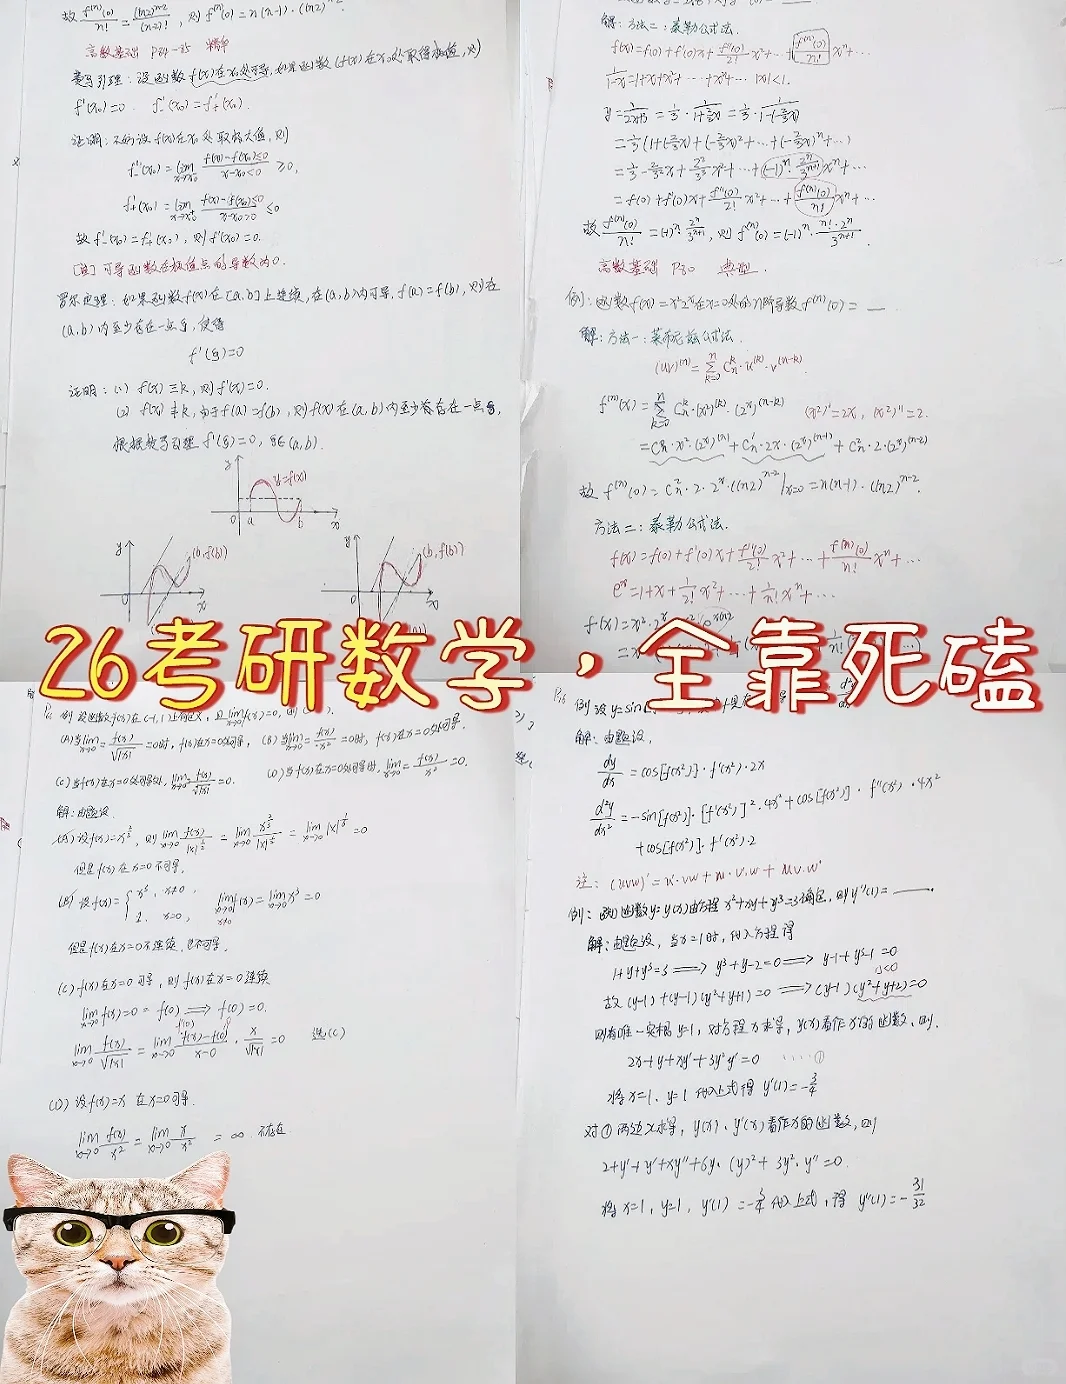 故 f⁽ⁿ⁾(0)/n! = (ln2)ⁿ⁻²/(n-2)!, 则 f⁽ⁿ⁾(0)=n(n-1)·(ln2)ⁿ⁻².
高数基础 P84-85 精华
费马引理：设函数f(x)在x₀处可导,如果函数f(x)在x₀处取得极值,则
f'(x₀)=0. f'₋(x₀)=f'₊(x₀).
证明：不妨设f(x)在x₀处取得大值,则
f'₋(x₀)=lim x→x₀⁻ f(x)-f(x₀)≤0/x-x₀<0 ≥0,
f'₊(x₀)=lim x→x₀⁺ f(x)-f(x₀)≤0/x-x₀>0 ≤0
故 f'₋(x₀)=f'₊(x₀), 则f'(x₀)=0.
[注] 可导函数在极值点的导数为0.
罗尔定理：如果函数f(x)在[a,b]上连续,在(a,b)内可导,f(a)=f(b),则在
(a,b)内至少存在一点ξ,使得
f'(ξ)=0
证明：(1) f(x)≡k,则f'(x)=0.
(2) f(x)≢k,由于f(a)=f(b),则f(x)在(a,b)内至少存在一点ξ,
根据费马引理 f'(ξ)=0, ξ∈(a,b).
y
y=f(x)
0 a b x
y (b,f(b))
0 x
y (b,f(b))
0 x
解：方法二：泰勒公式法.
f(x)=f(0)+f'(0)x+f''(0)/2! x²+…+f⁽ⁿ⁾(0)/n! xⁿ+…
1/1-x=1+x+x²+…+xⁿ+… |x|<1.
y=1/2x+3=1/3·1/1+⅔x=1/3·1/1-(-⅔x)
=1/3(1+(-⅔x)+(-⅔x)²+…+(-⅔x)ⁿ+…)
=1/3-2/3²x+2²/3³x²+…+(-1)ⁿ2ⁿ/3ⁿ⁺¹xⁿ+…
=f(0)+f'(0)x+f''(0)/2! x²+…+f⁽ⁿ⁾(0)/n! xⁿ+…
故 f⁽ⁿ⁾(0)/n!=(-1)ⁿ 2ⁿ/3ⁿ⁺¹, 则 f⁽ⁿ⁾(0)=(-1)ⁿ·n!·2ⁿ/3ⁿ⁺¹.
高数基础 P80 典型.
例：函数f(x)=x²2ˣ在x=0处的n阶导数f⁽ⁿ⁾(0)=__
解：方法一：莱布尼兹公式法.
(uv)⁽ⁿ⁾=Σ k=0 n Cₙᵏ·u⁽ᵏ⁾·v⁽ⁿ⁻ᵏ⁾.
f⁽ⁿ⁾(x)=Σ k=0 n Cₙᵏ·(x²)⁽ᵏ⁾·(2ˣ)⁽ⁿ⁻ᵏ⁾ (x²)'=2x, (x²)''=2.
=Cₙ⁰·x²·(2ˣ)⁽ⁿ⁾+Cₙ¹·2x·(2ˣ)⁽ⁿ⁻¹⁾+Cₙ²·2·(2ˣ)⁽ⁿ⁻²⁾
故 f⁽ⁿ⁾(0)=Cₙ²·2·2ˣ·(ln2)ⁿ⁻²|x=0=n(n-1)·(ln2)ⁿ⁻².
方法二：泰勒公式法.
f(x)=f(0)+f'(0)x+f''(0)/2! x²+…+f⁽ⁿ⁾(0)/n! xⁿ+…
eˣ=1+x+1/2! x²+…+1/n! xⁿ+…
f(x)=x²·2ˣ
26考研数学，全靠死磕
例 设函数f(x)在(-1,1)上有定义,且lim x→0 f(x)=0,则( ).
(A)当lim x→0 f(x)/√|x|=0时,f(x)在x=0处可导, (B)当lim x→0 f(x)/x²=0时,f(x)在x=0处可导.
(C)当f(x)在x=0处可导时,lim x→0 f(x)/√|x|=0. (D)当f(x)在x=0处可导时,lim x→0 f(x)/x²=0.
解：由题设
但是f(x)在x=0不可导,
lim x→0 x≠0 f(x)=lim x→0 x³=0
但是f(x)在x=0不连续,也不可导,
(C) f(x)在x=0可导,则f(x)在x=0连续
lim x→0 f(x)=0=f(0) ⟹ f(0)=0.
lim x→0 f(x)/√|x|=lim x→0 f(x)-f(0)/x-0·x/√|x|=0 选(C)
(D) 设f(x)=x 在x=0可导.
lim x→0 f(x)/x²=lim x→0 x/x²=∞ 不存在
例 设y=sin[
解：由题设,
dy/dx=cos[f(x²)]·f'(x²)·2x
d²y/dx²=-sin[f(x²)]·[f'(x²)]²·4x²+cos[f(x²)]·f''(x²)·4x²
+cos[f(x²)]·f'(x²)·2
注：(uvw)'=u'·vw+u·v'w+uv·w'
例：设函数y=y(x)由方程x²+xy+y³=3确定,则y''(1)=____.
解：由题设,当x=1时,代入方程得
1+y+y³=3⟹y³+y-2=0⟹y-1+y³-1=0
△<0
故(y-1)+(y-1)(y²+y+1)=0⟹(y-1)(y²+y+2)=0
则有唯一实根y=1,对方程x求导,y(x)看作x的函数,则.
2x+y+xy'+3y²y'=0 ……①
将x=1、y=1代入上式得 y'(1)=-3/4
对①两边x求导,y(x)、y'(x)看作x的函数,则
2+y'+y'+xy''+6y·(y')²+3y²·y''=0.
将x=1,y=1,y'(1)=-3/4代入上式,得 y''(1)=-31/32